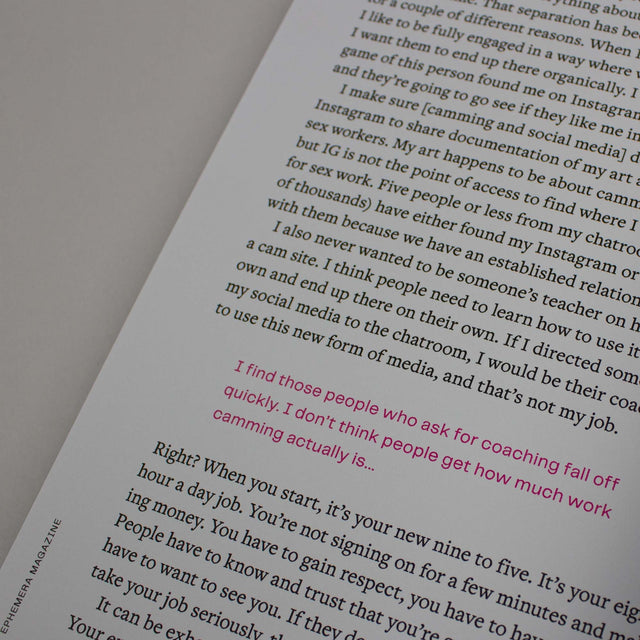 ything about
me. That separation has be
for a couple of different reasons. When I
I like to be fully engaged in a way where
I want them to end up there organically. I
game of this person found me on Instagram
and they're going to go see if they like me in
I make sure [camming and social media] d
Instagram to share documentation of my art a
sex workers. My art happens to be about camm
but IG is not the point of access to find where I
for sex work. Five people or less from my chatroo
of thousands) have either found my Instagram or
with them because we have an established relation
I also never wanted to be someone's teacher on h
a cam site. I think people need to learn how to use it
own and end up there on their own. If I directed som
my social media to the chatroom, I would be their coa
to use this new form of media, and that's not my job.
I find those people who ask for coaching fall off
quickly. I don't think people get how much work
camming actually is...
Right? When you start, it's your new nine to five. It's your eig
hour a day job. You're not signing on for a few minutes and m
ing money. You have to gain respect, you have to hav
People have to know and trust that you're
have to want to see you. If they do
take your job seriously, th
It can be exh
Your e
EPHEMERA MAGAZINE